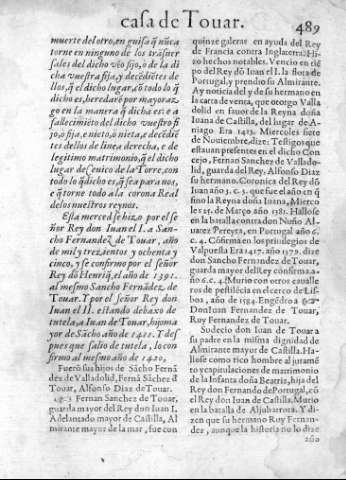 casa de Touar.
489
muerte del otro, en guisa q̃ nũca
torne en ninguno de los trãsuer
sales del dicho vr̃o fijo, o de la di
cha vuestra fija, y decẽdiẽtes de
llos, q̃ el dicho lugar, cõ todo lo q̃
dicho es, heredarõ por mayoraz
go en la manera q̃ dicha es: e a
fallecimiẽto del dicho vuestro fi
jo, o fija, e nieto, o nieta, e decẽdiẽ
tes dellos de linea derecha, e de
legitimo matrimonio, q̃ el dicho
lugar de la Torre, con
todo lo q̃ dicho es, q̃ sea para nos,
e q̃ torne todo a la corona Real
de los nuestros reynos.
Esta merced se hizo por el señor
Rey don Iuan el I. a San-
cho Fernandez de Touar, año
de mil y trezientos y ochenta y
cinco, y se confirmo por el señor
Rey dõ Henriq̃, el año de 1391.
al mesmo Sancho Fernãdez, de
Touar. Y por el Señor Rey don
Iuan el II. estando debaxo de
tutela, a Iuan de Touar, hijo ma
yor de Sãcho año de 1408. Y des
pues que salio de tutela, lo con
firmo al mesmo año de 1420,
Fuerõ sus hijos de Sãcho Fernã
dez de Valladolid, Fernã Sãchez d
Touar, Alfonso Diaz de Touar.
Fernan Sanchez de Touar,
guarda mayor del Rey don Iuan I.
Adelantado mayor de Castilla, Al
mirante mayor de la mar, fue con
quinze galeras en ayuda del Rey
de Francia contra Inglaterra. Hi
zo hechos notables. Vencio en tiẽ
po del Rey dõ Iuan el I. la flota de
Portugal, y prendio su Almirante.
Ay noticia del y de su hermano en
la carta de venta, que otorgo Valla
dolid en fauor de la Reyna doña
Iuana de Castilla, del lugar de A-
niago Era 1413. Miercoles siete
de Nouiembre, dize: Testigos que
estauan presentes en el dicho Con
cejo, Fernan Sanchez de Vallado-
lid, guarda del Rey. Alfonso Diaz
su hermano. Coronica del Rey dõ
Iuan año 3. c. 3. que fue el año en q̃
fino la Reyna doña Iuana, Mierco
les 15. de Março año 1381. Hallose
en la batalla contra don Nuño Al-
uarez Pereyra, en Portugal año 6.
c. 4. Cõfirma en los priuilegios de
Valpuesta Era 1417. año 1379. dize
don Sancho Fernandez de Touar,
guarda mayor del Rey cõfirma: a-
ño 6. c. 4. Murio con otros caualle
ros de pestilẽcia en el cerco de Lis-
boa, año de 1384. Engẽdro a
Don Iuan Fernandez de Touar,
Ruy Fernandez de Touar.
Sucedio don Iuan de Touar a
su padre en la misma dignidad de
Almirante mayor de Castilla. Ha-
llose como rico hombre al juramẽ
to y capitulaciones de matrimonio
de la Infanta doña Beatriz, hija del
Rey don Fernando de Portugal, cõ
el Rey don Iuan de Castilla. Murio
en la batalla de Aljubarrota. Y di-
zen que su hermano Ruy Fernan-
dez, aunque la historia no lo dize
año